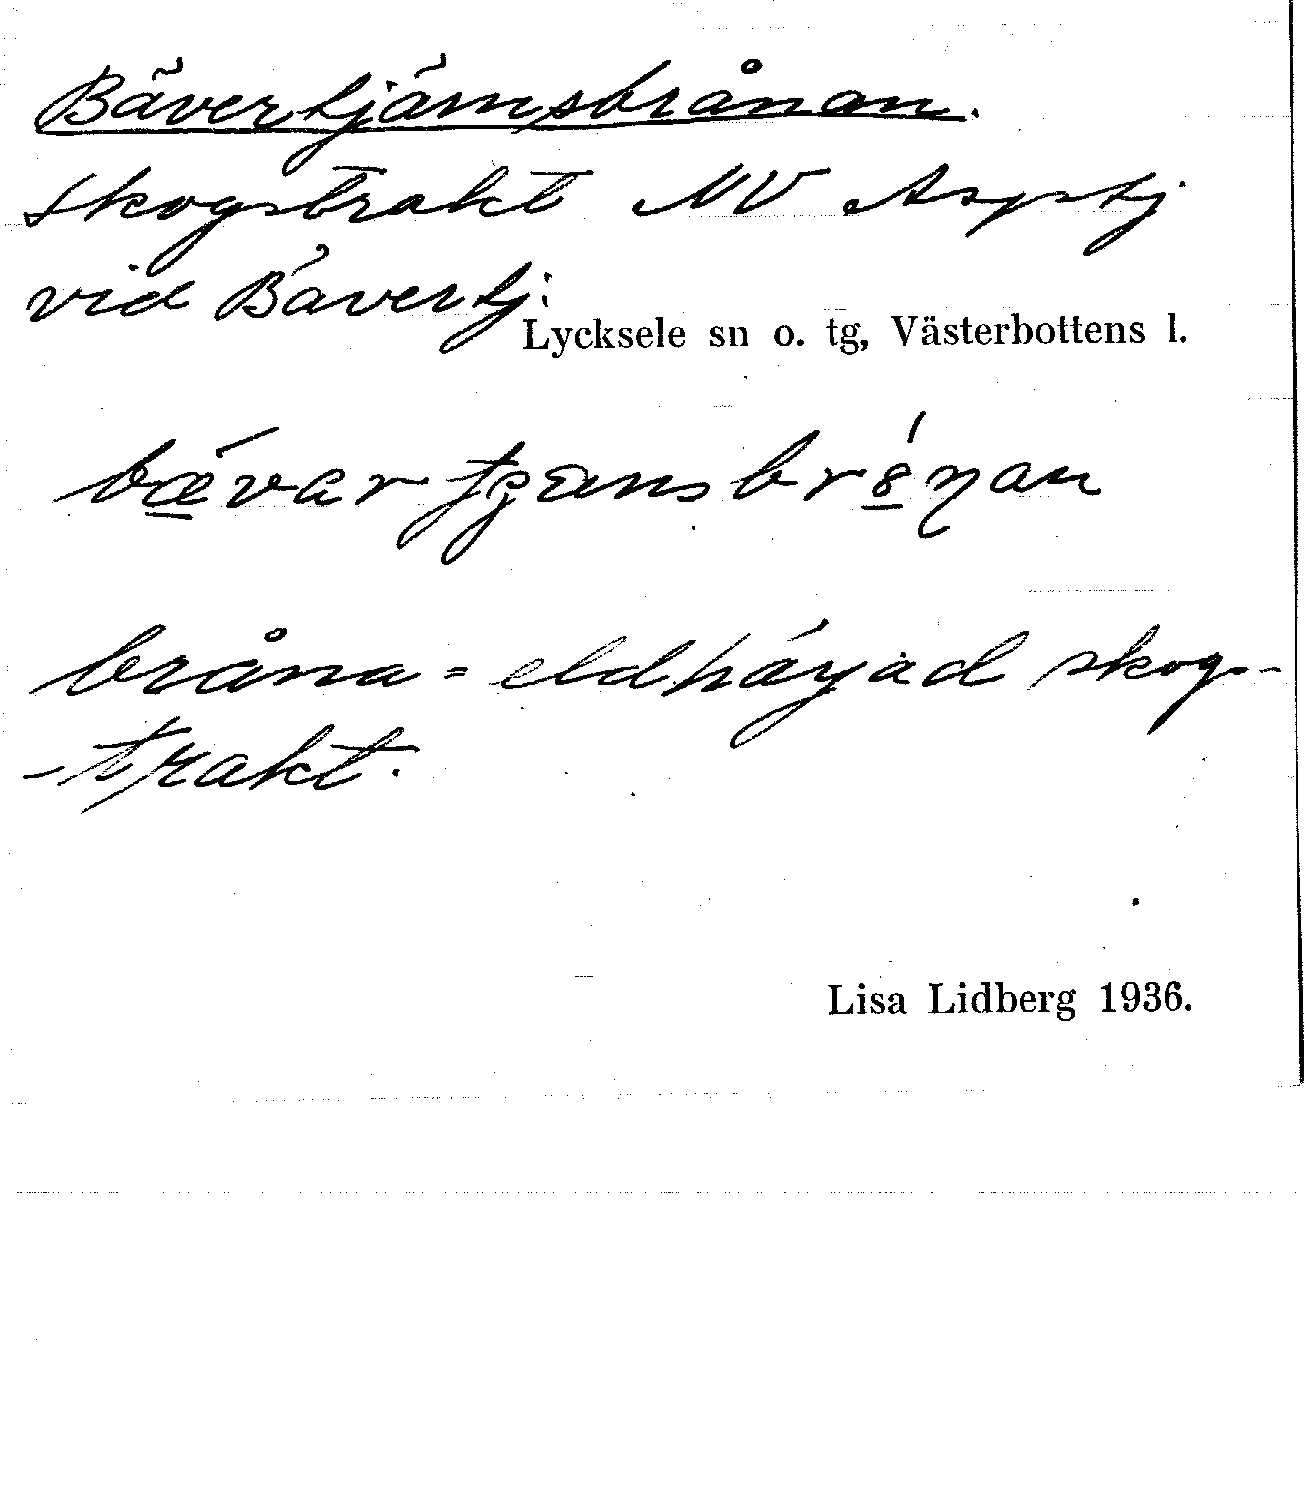 Bävertjärnsbrånan.
skogstrakt NV Asptj
vid Bävertj.
Lycksele sn o. tg, Västerbottens l.
bråna = eldhärjad skogs-
-trakt.
Lisa Lidberg 1936.